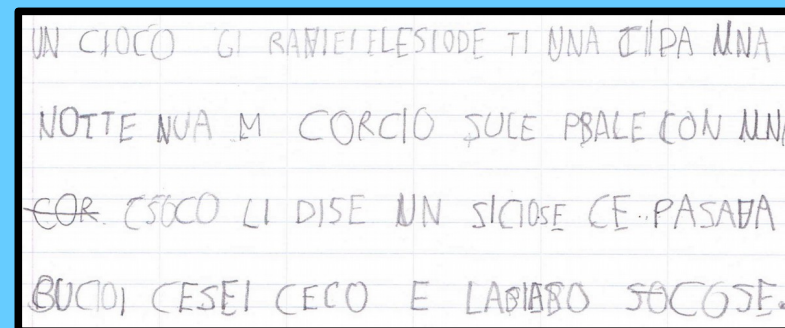 UN CIOCO GI RANIEI ELESIODE TI UNA CIIPA UNA
NOTTE NUA M CORCIO SULE PBALE CON UNA
COR CSOCO LI DISE UN SICIOSE CE..PASAVA
BUCIOI CESEI CECO E LABIABO SOCOSE.